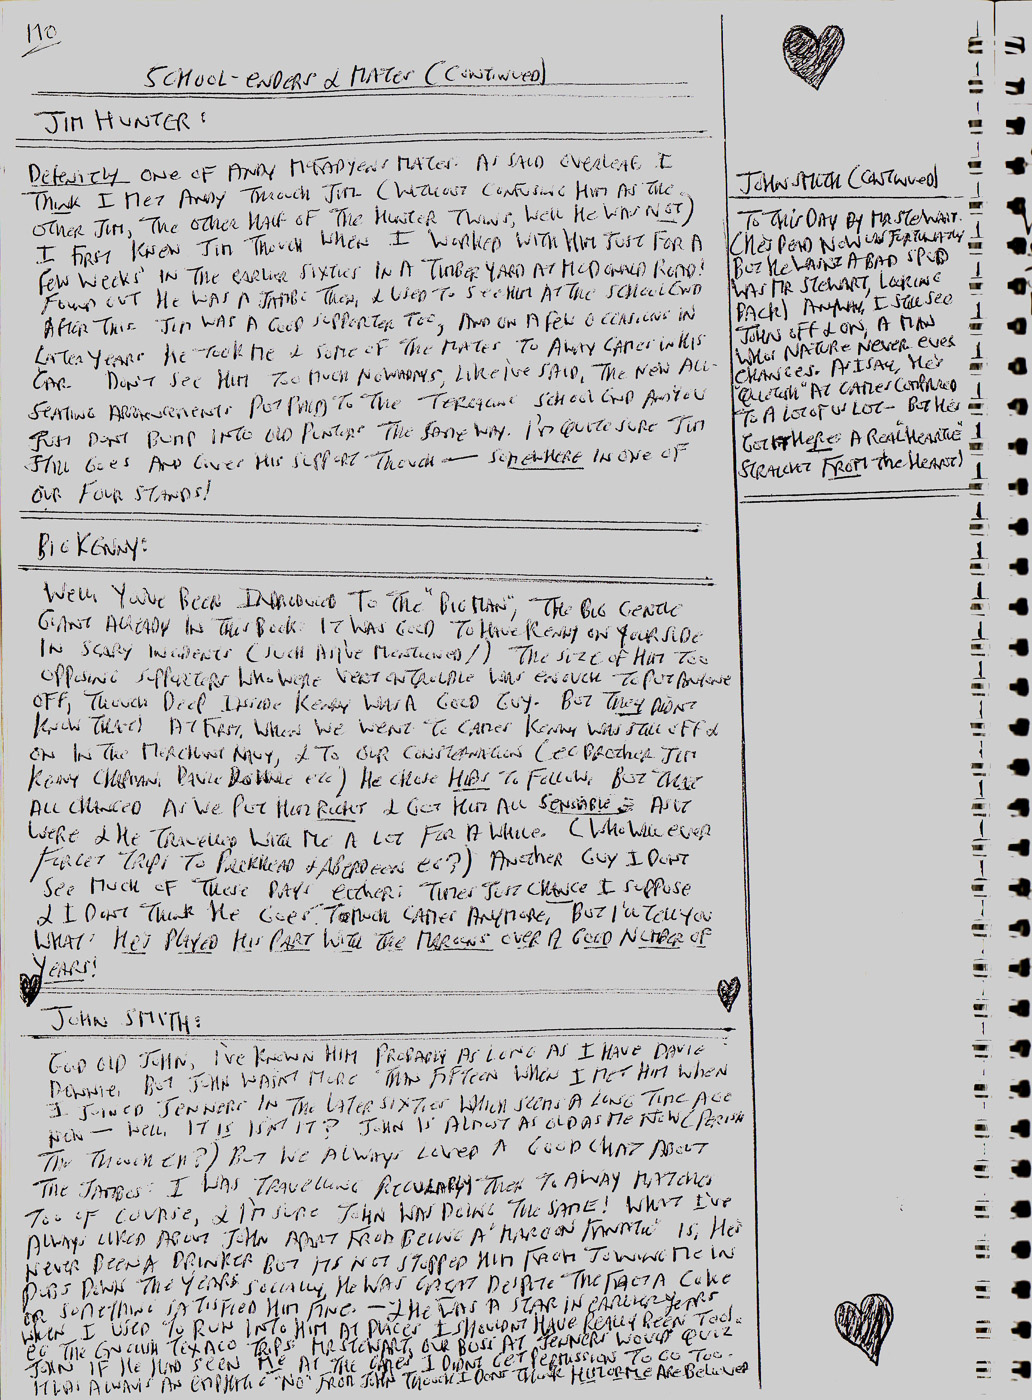 110
SCHOOL-ENDERS & MATES (CONTINUED)
JIM HUNTER:
DEFENITLY ONE OF ANDY McFADYENS MATES. AS SAID OVERLEAF I
THINK I MET ANDY THROUGH JIM. (WITHOUT CONFUSING HIM AS THE
OTHER JIM, THE OTHER HALF OF THE HUNTER TWINS, WELL HE WAS NOT)
I FIRST KNEW JIM THOUGH WHEN I WORKED WITH HIM JUST FOR A
FEW WEEKS IN THE EARLIER SIXTIES IN A TIMBER YARD AT McDONALD ROAD!
FOUND OUT HE WAS A JAMBO THEN, & USED TO SEE HIM AT THE SCHOOL END
AFTER THIS. JIM WAS A GOOD SUPPORTER TOO, AND ON A FEW OCCASIONS IN
LATER YEARS HE TOOK ME & SOME OF THE MATES TO AWAY GAMES IN HIS
CAR. DON'T SEE HIM TOO MUCH NOWADAYS, LIKE I'VE SAID, THE NEW ALL-
SEATING ARRANGEMENTS PUT PAID TO THE TERRACING SCHOOL END AND YOU
JUST DONT BUMP INTO OLD PUNTERS THE SAME WAY. I'M QUITE SURE JIM
STILL GOES AND GIVES HIS SUPPORT THOUGH — SOMEWHERE IN ONE OF
OUR FOUR STANDS!
BIG KENNY:
WELL YOU'VE BEEN INTRODUCED TO THE "BIG MAN", THE BIG GENTLE
GIANT ALREADY IN THIS BOOK. IT WAS GOOD TO HAVE KENNY ON YOUR SIDE
IN SCARY INCIDENTS (SUCH AS I'VE MENTIONED!) THE SIZE OF HIM TOO
OPPOSING SUPPORTERS WHO WERE VERY ON TROUBLE WAS ENOUGH TO PUT ANYONE
OFF, THOUGH DEEP INSIDE KENNY WAS A GOOD GUY. BUT THEY DIDN'T
KNOW THAT! AT FIRST, WHEN WE WENT TO GAMES KENNY WAS STILL OFF &
ON IN THE MERCHANT NAVY, & TO OUR CONSTERNATION (EG BROTHER JIM
KENNY CHAPMAN, DAVIE DOWNIE ETC) HE CHOSE HIBS TO FOLLOW. BUT THAT
ALL CHANGED AS WE PUT HIM RIGHT & GOT HIM ALL SENSIBLE AS IT
WERE & HE TRAVELLED WITH ME A LOT FOR A WHILE. (WHO WILL EVER
FORGET TRIPS TO PARKHEAD & ABERDEEN EG?) ANOTHER GUY I DONT
SEE MUCH OF THESE DAYS EITHER: TIMES JUST CHANGE I SUPPOSE
& I DONT THINK HE GOES TO MUCH GAMES ANYMORE, BUT I'LL TELL YOU
WHAT: HE'S PLAYED HIS PART WITH THE MAROONS OVER A GOOD NUMBER OF
YEARS!
JOHN SMITH:
GOOD OLD JOHN, I'VE KNOWN HIM PROBABLY AS LONG AS I HAVE DAVIE
DOWNIE. BUT JOHN WASNT MORE THAN FIFTEEN WHEN I MET HIM WHEN
I JOINED JENNERS IN THE LATER SIXTIES WHICH SEEMS A LONG TIME AGO
NOW — WELL IT IS ISN'T IT? JOHN IS ALMOST AS OLD AS ME NOW (PERISH
THE THOUGHT EH?) BUT WE ALWAYS LOVED A GOOD CHAT ABOUT
THE JAMBOS: I WAS TRAVELLING REGULARLY THEN TO AWAY MATCHES
TOO OF COURSE, & I'M SURE JOHN WAS DOING THE SAME! WHAT I'VE
ALWAYS LIKED ABOUT JOHN APART FROM BEING A "MAROON FANATIC" IS, HE'S
NEVER BEEN A DRINKER BUT ITS NOT STOPPED HIM FROM JOINING ME IN
PUBS DOWN THE YEARS SOCIALLY, HE WAS GREAT DESPITE THE FACT A COKE
OR SOMETHING SATISFIED HIM FINE. — & HE WAS A STAR IN EARLIER YEARS
WHEN I USED TO RUN INTO HIM AT PLACES I SHOULDNT HAVE REALLY BEEN TOO!
EG THE ENGLISH TEXACO TRIPS. MR STEWART, OUR BOSS AT JENNERS WOULD QUIZ
JOHN IF HE HAD SEEN ME AT THE GAMES I DIDNT GET PERMISSION TO GO TOO.
IT WAS ALWAYS AN EMPHATIC "NO" FROM JOHN THOUGH I DONT THINK HIM OR ME ARE BELIEVED
JOHN SMITH (CONTINUED)
TO THIS DAY BY MR STEWART.
(HE'S DEAD NOW UNFORTUNATELY
BUT HE WASNT A BAD SPUD
WAS MR STEWART, LOOKING
BACK) ANYWAY, I STILL SEE
JOHN OFF & ON, A MAN
WHOS NATURE NEVER EVER
CHANGES. AS I SAY, HE'S
"QUIETISH" AT GAMES COMPARED
TO A LOT OF US LOT — BUT HE'S
GOT IT HERE: A REAL "HEARTIE"
STRAIGHT FROM THE HEART)